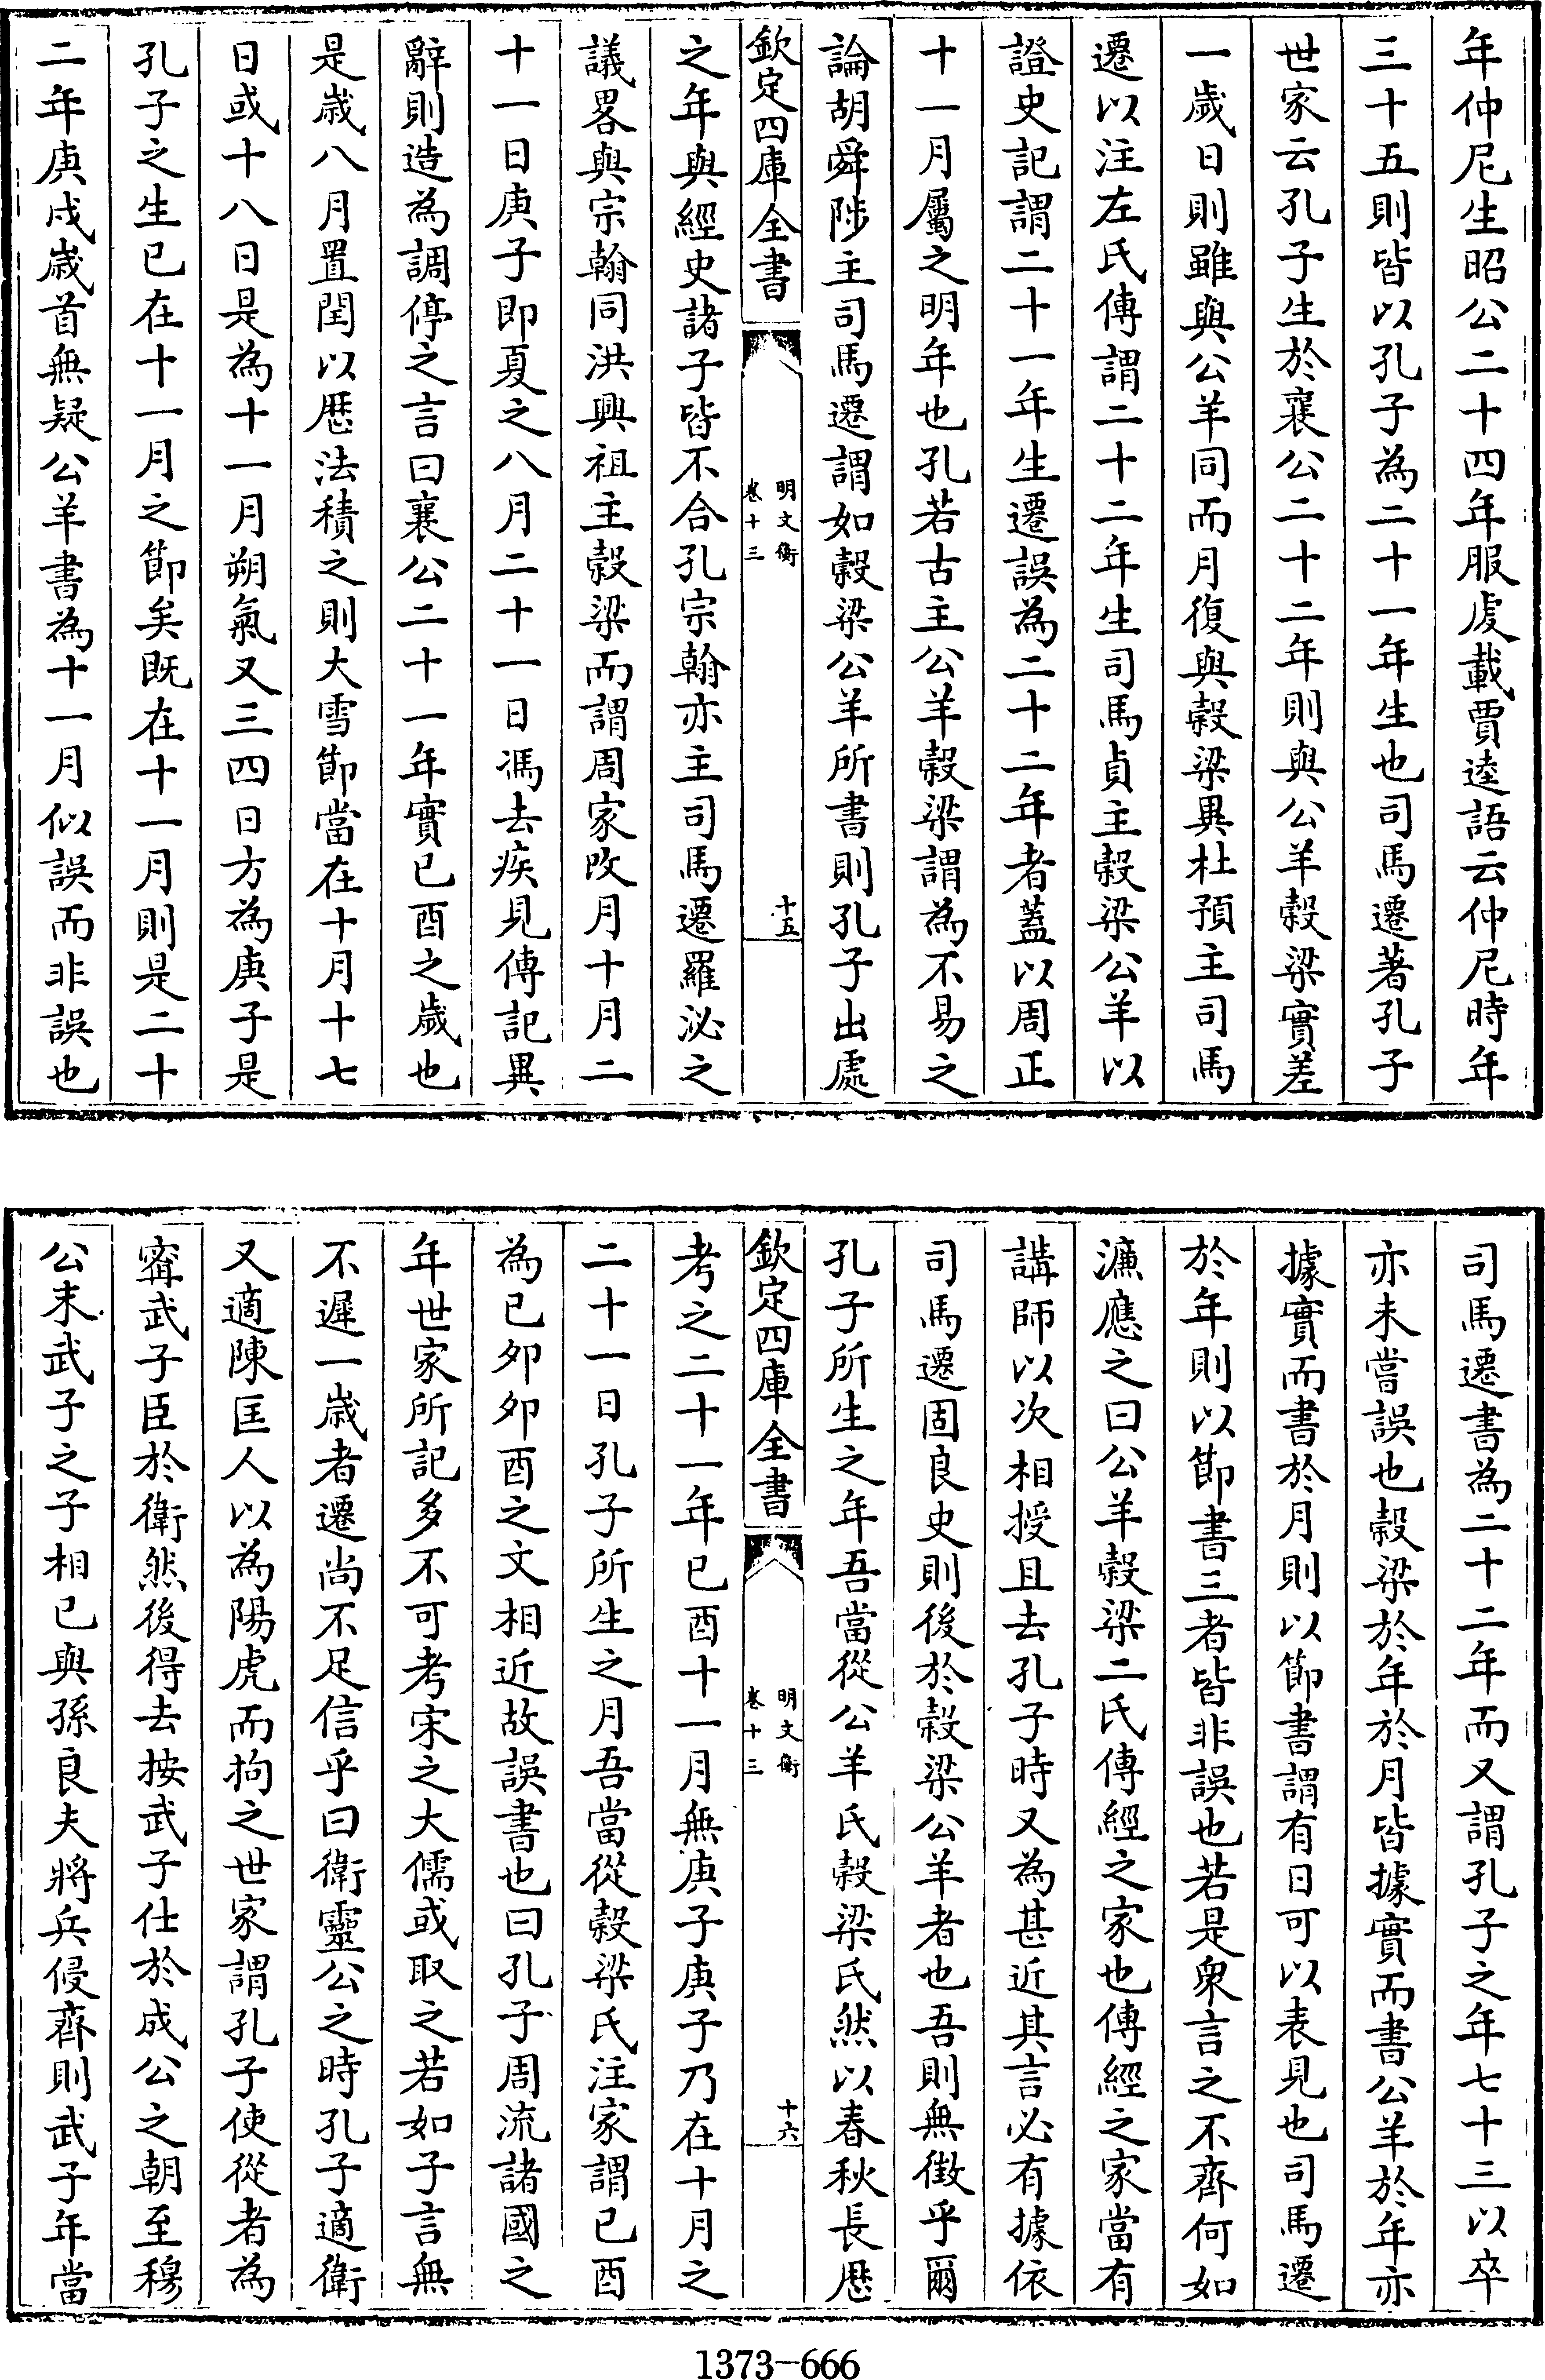 年仲尼生昭公二十四年服虔載賈逵語云仲尼時年
三十五則皆以孔子為二十一年生也司馬遷著孔子
世家云孔子生於襄公二十二年則與公羊穀梁實差
一歲日則雖與公羊同而月復與穀梁異杜預主司馬
遷以注左氏傳謂二十二年生司馬貞主穀梁公羊以
證史記謂二十一年生遷誤為二十二年者蓋以周正
十一月屬之明年也孔若古主公羊穀梁謂為不易之
論胡舜陟主司馬遷謂如穀梁公羊所書則孔子出處
欽定四庫全書
明文衡
卷十三
十五
之年與經史諸子皆不合孔宗翰亦主司馬遷羅泌之
議畧與宗翰同洪興祖主穀梁而謂周家改月十月二
十一日庚子即夏之八月二十一日馮去疾見傳記異
辭則造為調停之言曰襄公二十一年實已酉之歲也
是歲八月置閏以厯法積之則大雪節當在十月十七
日或十八日是為十一月朔氣又三四日方為庚子是
孔子之生已在十一月之節矣既在十一月則是二十
二年庚戌歲首無疑公羊書為十一月似誤而非誤也
司馬遷書為二十二年而又謂孔子之年七十三以卒
亦未嘗誤也穀梁於年於月皆據實而書公羊於年亦
據實而書於月則以節書謂有日可以表見也司馬遷
於年則以節書三者皆非誤也若是衆言之不齊何如
濂應之曰公羊穀梁二氏傳經之家也傳經之家當有
講師以次相授且去孔子時又為甚近其言必有據依
司馬遷固良史則後於穀梁公羊者也吾則無徴乎爾
孔子所生之年吾當從公羊氏穀梁氏然以春秋長厯
欽定四庫全書
明文衡
卷十三
十六
考之二十一年已酉十一月無庚子庚子乃在十月之
二十一日孔子所生之月吾當從穀梁氏注家謂已酉
為已夘夘酉之文相近故誤書也曰孔子周流諸國之
年世家所記多不可考宋之大儒或取之若如子言無
不遲一歲者遷尚不足信乎曰衛靈公之時孔子適衛
又適陳匡人以為陽虎而拘之世家謂孔子使從者為
甯武子臣於衛然後得去按武子仕於成公之朝至穆
公末武子之子相已與孫良夫將兵侵齊則武子年當
1373-666